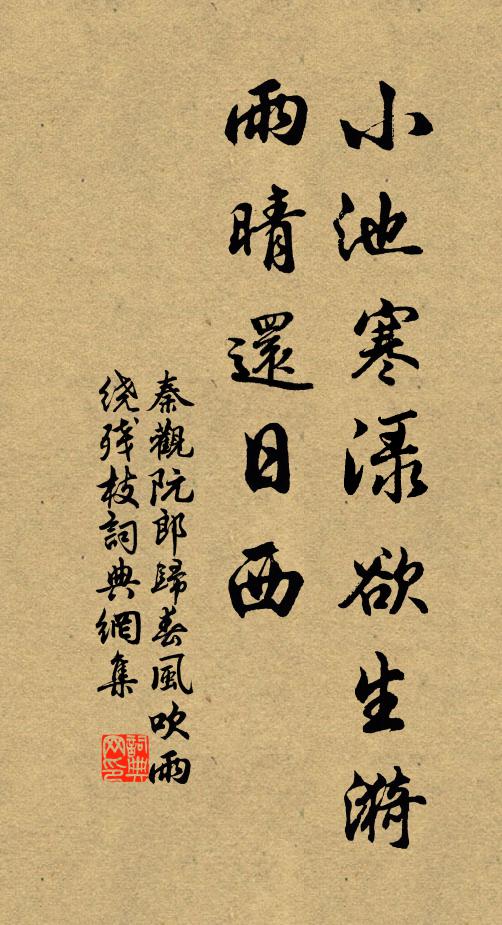 小池寒渌欲生漪
雨晴還日西
秦觀阮郎歸春風吹雨
绕残枝詞典網集
詞典网印